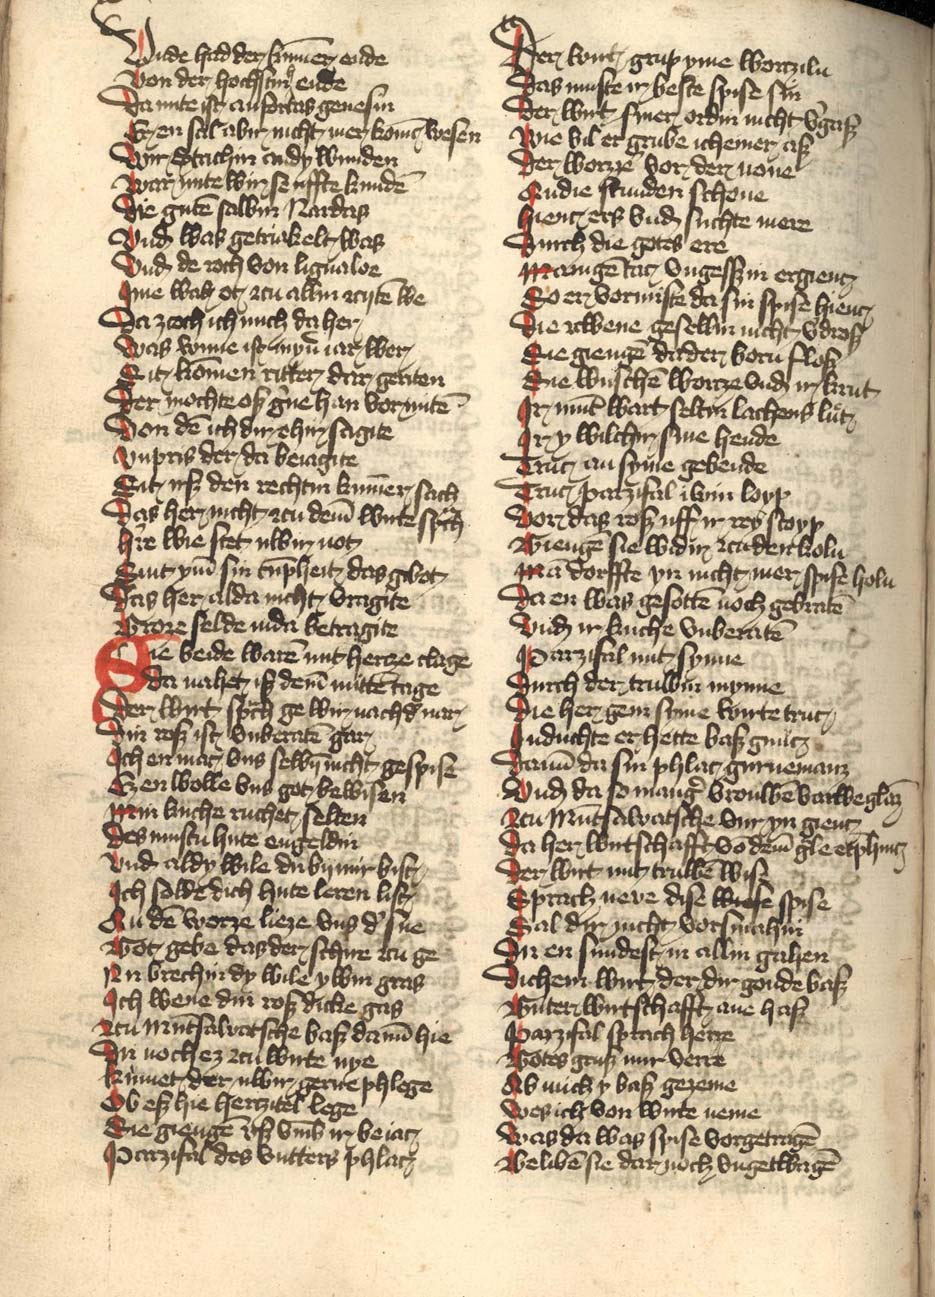 Vnde had der kum̄er ende
Von der hochstin hende
Da mite ist anfortas genesin
Er en sal abir nicht mer konig wesen
Wir strachin an dy wunden
War mite wir senffte kundē
Die gutē salbin Nardas
Vnd was getriakelt was
Vnd de roch von lignaloe
Ime was ot zcu allin zcijtē we
Da zcoch ich mich da her
Was wnne ist mynˀ iar wer
Sit komen ritter dar geriten
Der mochte oß gne han vormitē
Von dē ich dir ehir sagite
Vnpris der da beiagite
Sit uß den rechtin kum̄er sach
Das her nicht zcu dem̄ wirte spͣch
Hˀre wie stet uwir not
Sint ym̄ sin tupheit das gebot
Das her alda nicht vragite
Grozre selde inda betragite
Sie beide warē mit hertze clage
da nahet iß dem̄ mittē tage
Der wirt spͣch ge wir nach dˀ nar
Din roß ist vnberatē gar
Ich en mac vns selbin nicht gespise
Er en wolle vns got bewisen
Min kuche ruchet selten
Des mustu hute engeldin
Vnd aldy wile du bij mir bist
Ich solde dich hute leren list
An dē worze lieze vns dˀ sne
Got gebe das der schire zcu ge
Nu brechin dy wile ywin gras
Ich wene din roß dicke gas
Zcu mūtsalvatsche baß dan̄ hie
Du noch ez zcu wirte nye
Kumet der uwir gerne phlege
Ob eß hie herzitel lege
Sie giengē vß vmb ir beiag
Parzifal des vutters phlag
Der wirt grup yme worzilin
Das muste ir beste spise sin
Der wirt siner ordin nicht vˀgaß
Wie vil er grube ichemer aß
Der worze vor der none
An die studen schone
Hienc ers vnd suchte mere
Durch die gotes ere
Mangē tac vngessin er gienc
So er vormiste da sin spise hienc
Die zcwene gesellin nicht vˀdroß
Sie giengē da der born floß
Sie wuschē worze vnd ir krut
Ir mūt wart seltin lachens lut
Ir y wilchir sine hende
Truc an syme gebende
Truc Parzifal ibin loyp
Vor das roß uff ir rey stoyp
Giengē sie widir zcu den koln
Mā dorffte yn nicht mer spise holn
Da en was gesottē noch gebratē
Vnd ir kuche vnberatē
Parzifal mit synne
Durch der truwin mynne
Die her gein sime wirte truc
In duchte er hette baß gnuc
Dan̄ da sin phlac gurnemanz
Vnd da so mangˀ vrouwē varwe glanz
Zcu mūtsalvatsche vur yn gienc
Da her wirtschafft vō dem̄ gͣle enphinc
Der wirt mit truwē wis
Sprach neve dise spise
Sal dir nicht vorsmahin
Du en fundest in allin gahen
Dichein wirt der dir gonde baß
Guter wirtschafft ane haß
Parzifal sprach herre
Gotes gruß mir verre
Ob mich y baß gezeme
Wes ich von wirte neme
Was da was spise vorgetragē
Belibē sie dar noch vngetwagē